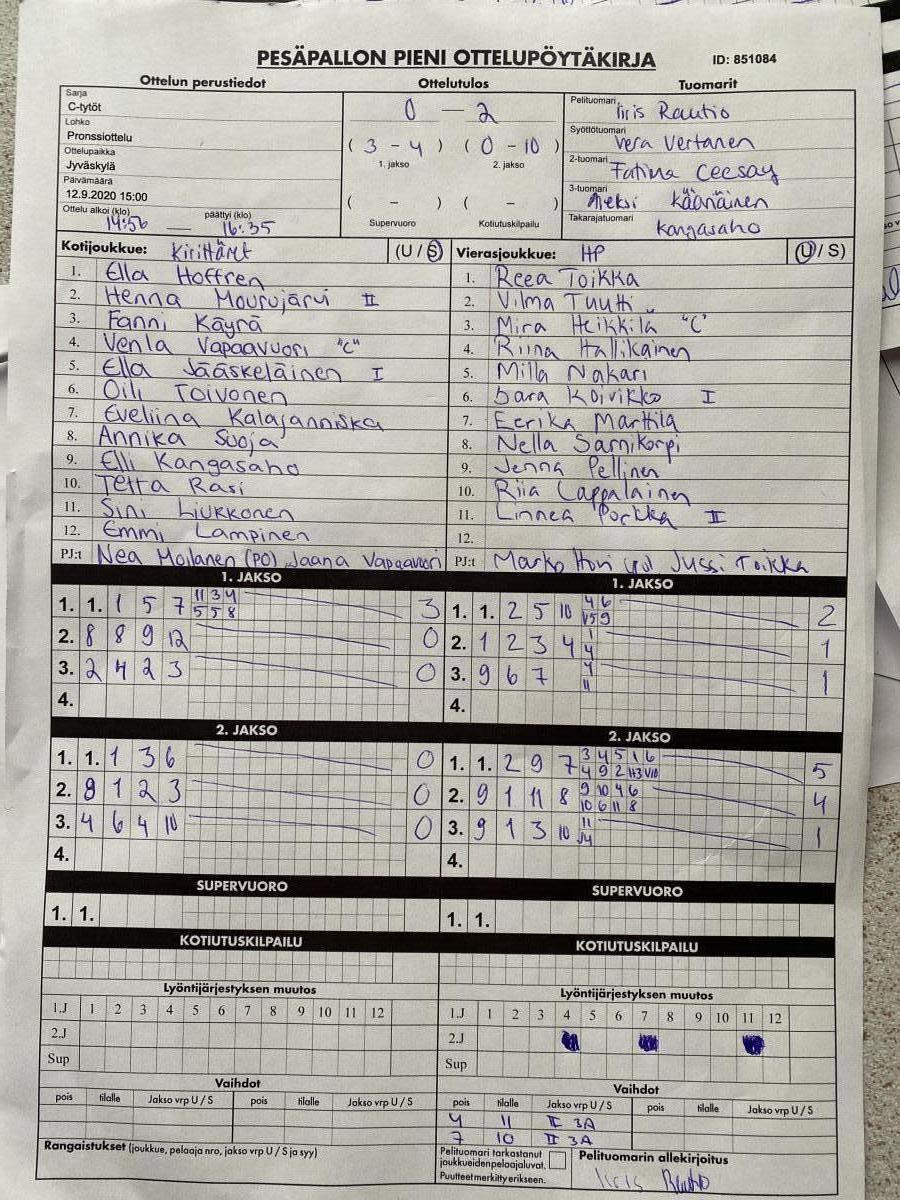 PESÄPALLON PIENI OTTELUPÖYTÄKIRJA
ID: 851084
Ottelun perustiedot
Sarja
C-tytöt
Lohko
Pronssiottelu
Ottelupaikka
Jyväskylä
Päivämäärä
12.9.2020 15:00
Ottelu alkoi (klo) päättyi (klo)
14:56 — 16:35
Ottelutulos
0 — 2
( 3 - 4 ) ( 0 - 10 )
1. jakso 2. jakso
( - ) ( - )
Supervuoro Kotiutuskilpailu
Tuomarit
Pelituomari Iiris Rautio
Syöttötuomari
Vera Vertanen
2-tuomari Fatima Ceesay
3-tuomari Aleksi Käänäinen
Takarajatuomari
Kangasaho
Kotijoukkue: Kirittäret (U / S)
1. Ella Hoffren
2. Henna Mourujärvi II
3. Fanni Käyrä
4. Venla Vapaavuori "C"
5. Ella Jääskeläinen I
6. Oili Toivonen
7. Eveliina Kalajanniska
8. Annika Suoja
9. Elli Kangasaho
10. Tetta Rasi
11. Sini Liukkonen
12. Emmi Lampinen
PJ:t Nea Moilanen (PO) Jaana Vapaavuori
Vierasjoukkue: HP (U / S)
1. Reea Toikka
2. Vilma Tuutti
3. Mira Heikkilä "C"
4. Riina Hallikainen
5. Milla Nakari
6. Sara Koivikko I
7. Eerika Marttila
8. Nella Sarnikorpi
9. Jenna Pellinen
10. Riia Lappalainen
11. Linnea Porkka II
12.
PJ:t Marko Jussi Toikka
1. JAKSO
1. 1. 1 5 7 11 3 4 3
5 5 8
2. 8 8 9 12 0
3. 2 4 2 3 0
4.
1. JAKSO
1. 1. 2 5 10 4 6 2
2. 1 2 3 4 1
4 1
3. 9 6 7 4 1
11
4.
2. JAKSO
1. 1. 1 3 6 0
2. 9 1 2 3 0
3. 4 6 4 10 0
4.
2. JAKSO
1. 1. 2 9 7 3 4 5 1 6 5
4 9 2
2. 9 1 11 8 9 10 4 6 4
10 6 11 8
3. 9 1 3 10 11 1
4.
SUPERVUORO
1. 1.
SUPERVUORO
1. 1.
KOTIUTUSKILPAILU
KOTIUTUSKILPAILU
Lyöntijärjestyksen muutos
1.J 1 2 3 4 5 6 7 8 9 10 11 12
2.J
Sup
Lyöntijärjestyksen muutos
1.J 1 2 3 4 5 6 7 8 9 10 11 12
2.J
Sup
Vaihdot
pois tilalle Jakso vrp U / S pois tilalle Jakso vrp U / S
Vaihdot
pois tilalle Jakso vrp U / S pois tilalle Jakso vrp U / S
4 11 II 3A
7 10 II 3A
Rangaistukset (joukkue, pelaaja nro, jakso vrp U / S ja syy)
Pelituomari tarkastanut
joukkueiden pelaajaluvat.
Puutteet merkitty erikseen.
Pelituomarin allekirjoitus
Iiris Rautio